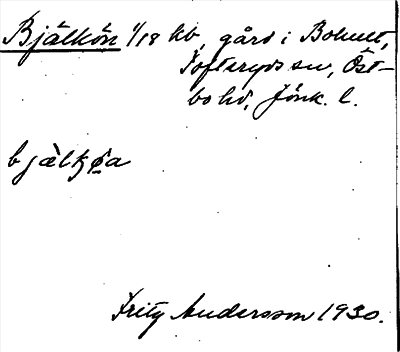 Bjälkön 1/18 kb, gård i Bohult,
Tofteryds sn, Öst-
bo hd, Jönk. l.
bjälkøa
Fritz Andersson 1930.